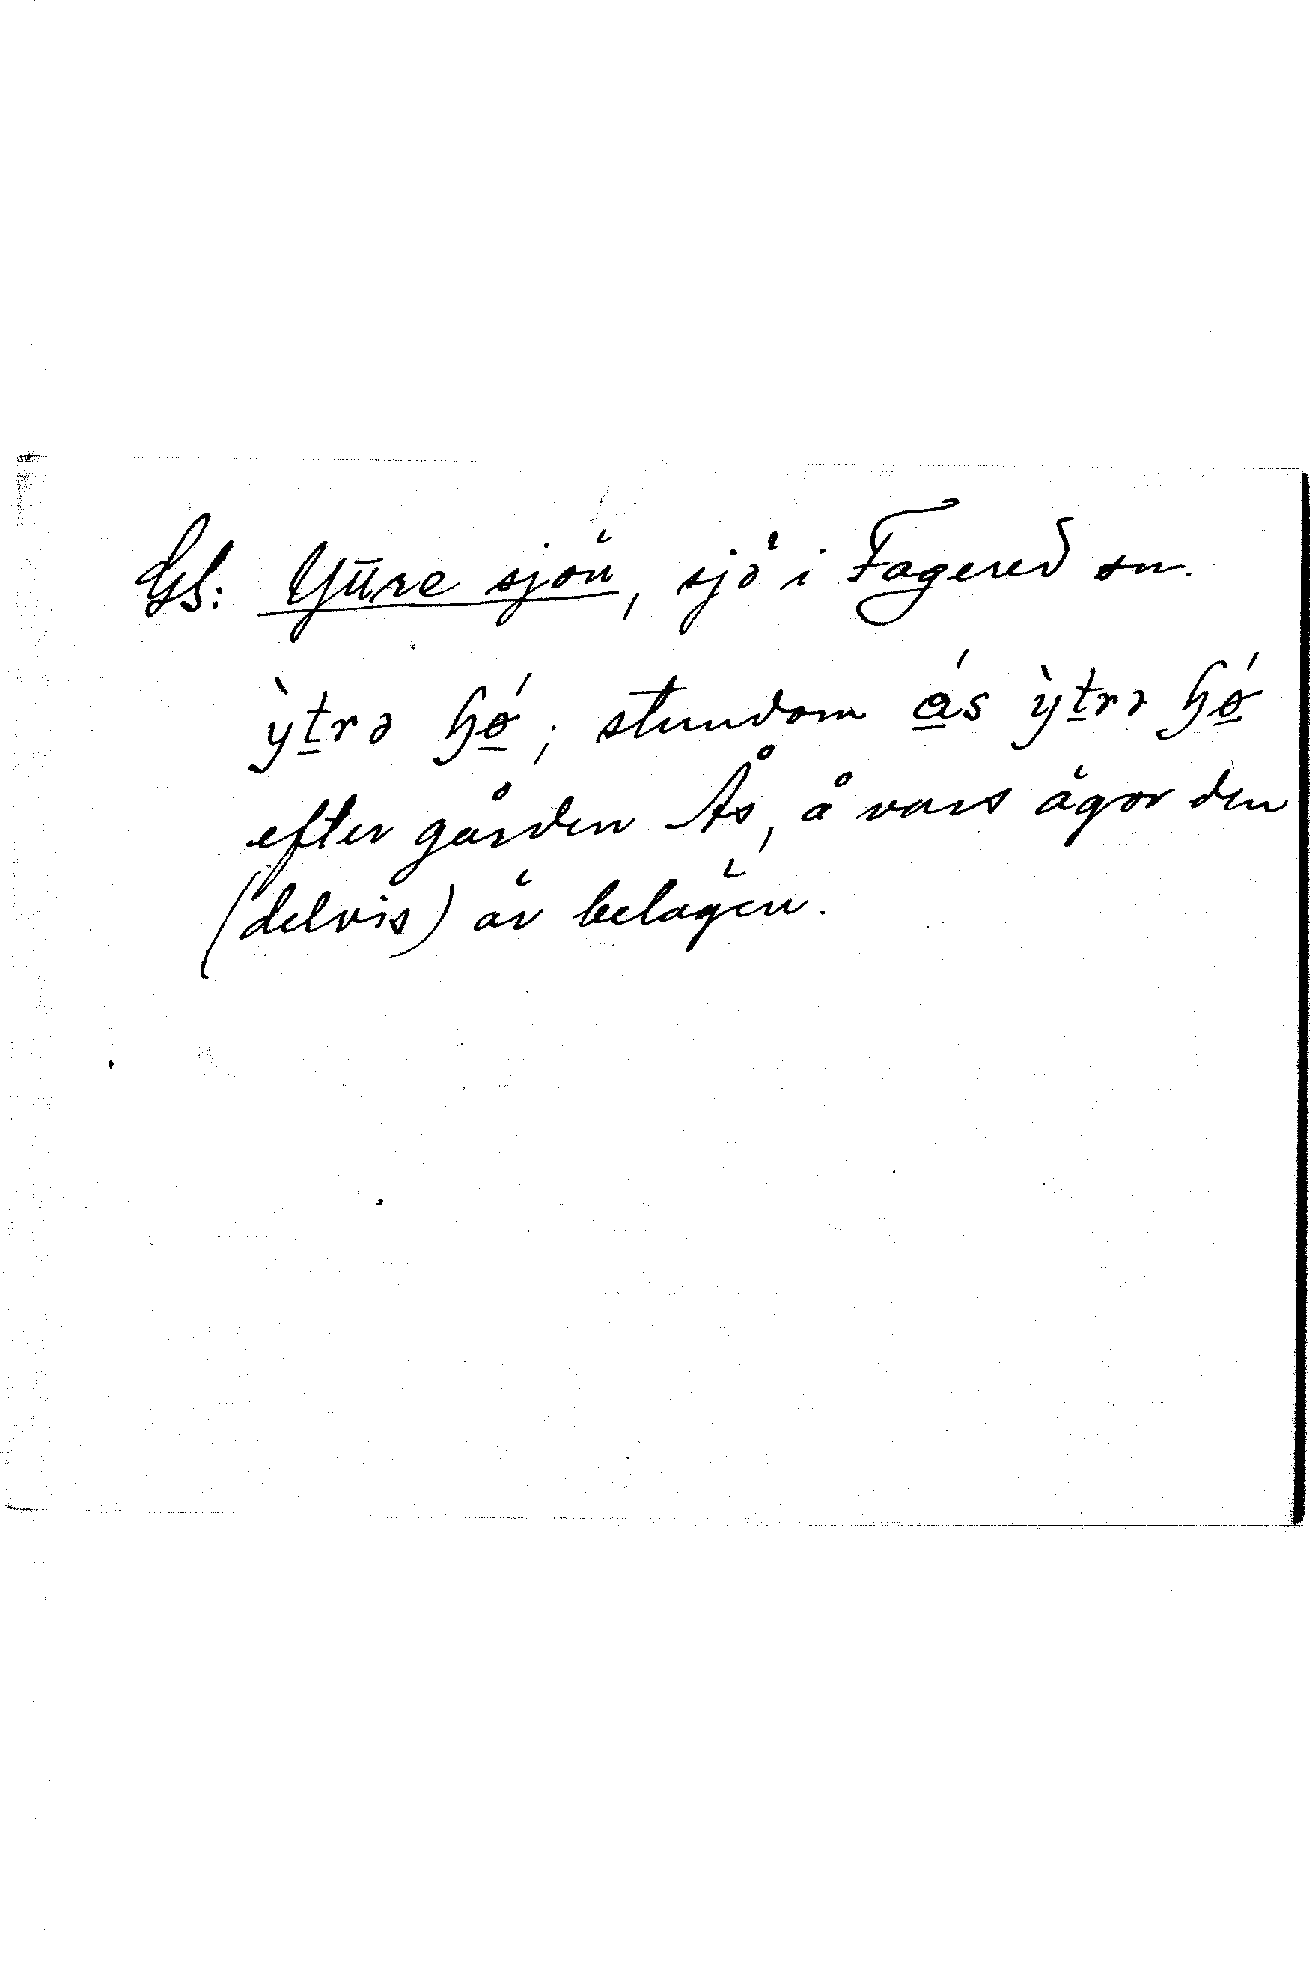 Gs: Yttre sjön, sjö i Fagered sn.
ỳt̲rə ɧǿ̲; stundom á̲s ỳt̲rə ɧǿ̲
efter gården Ås, å vars ägor den
(delvis) är belägen.